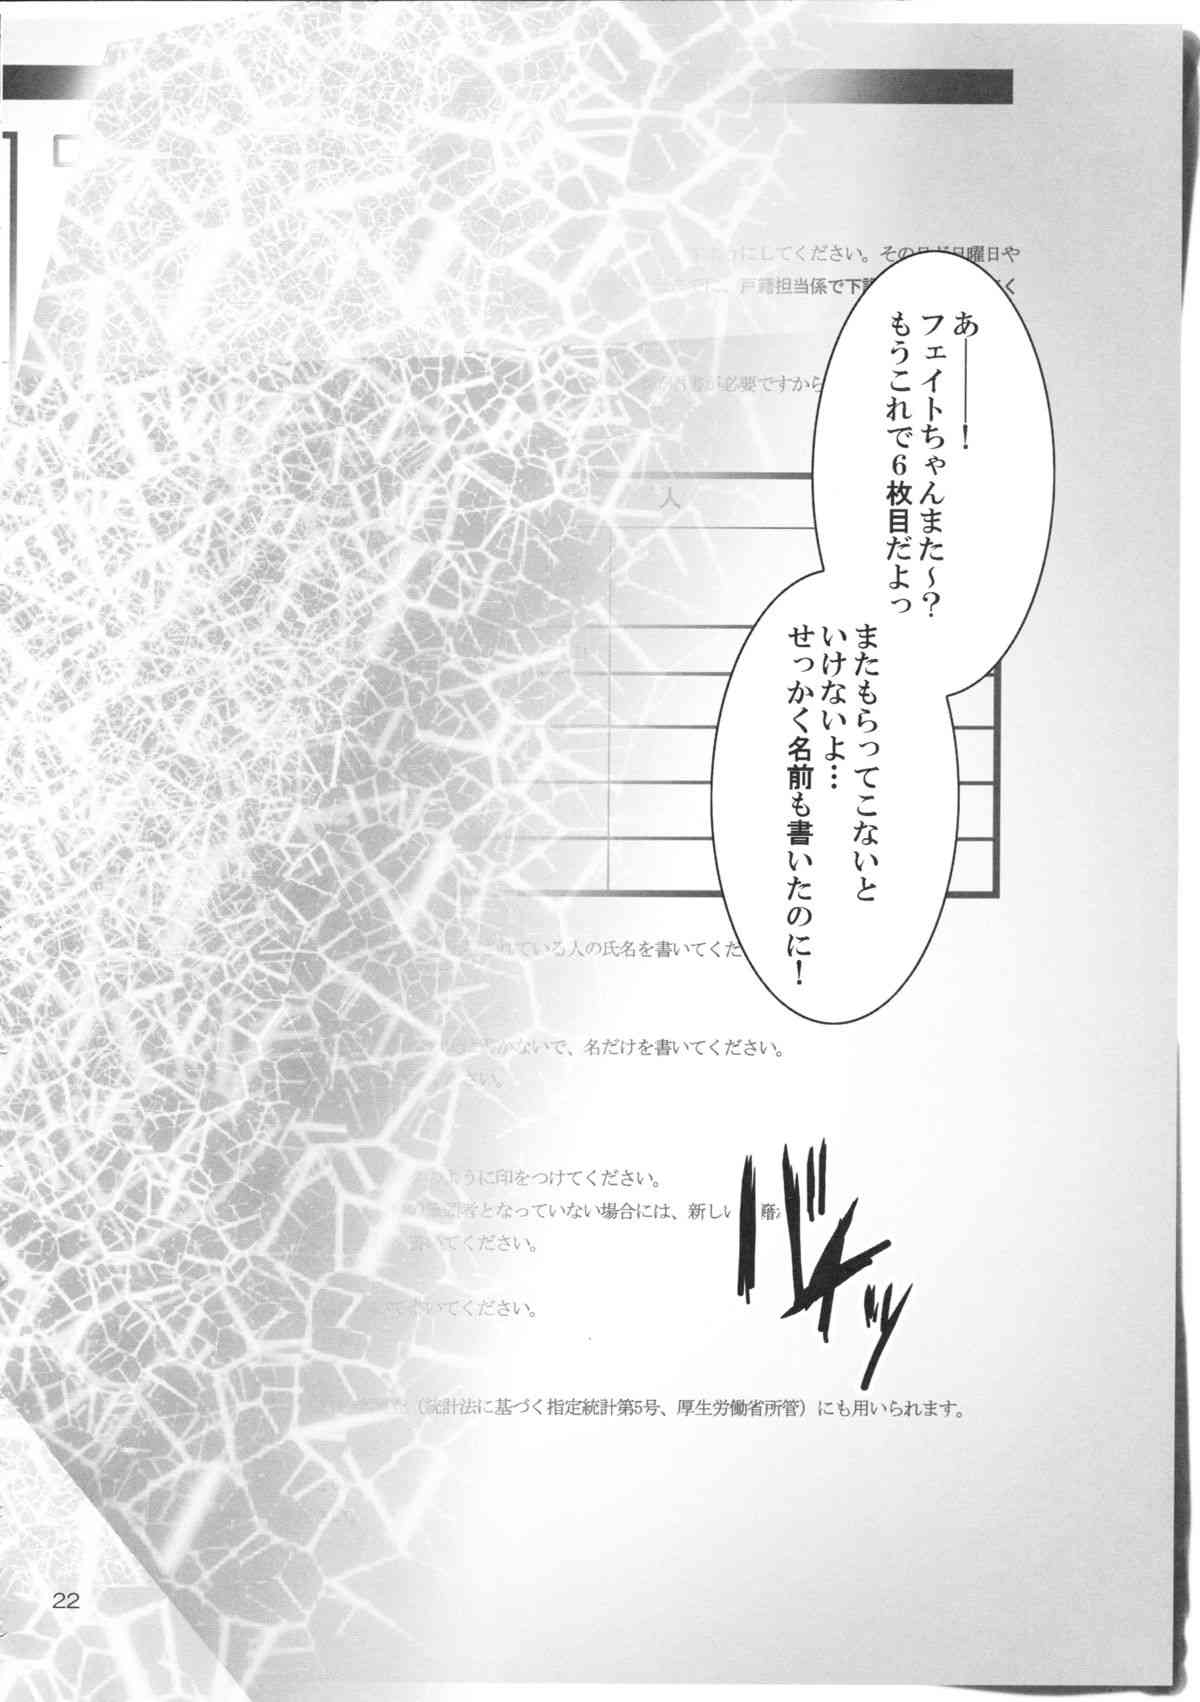 あ――――！
フェイトちゃんまた～？
もうこれで6枚目だよっ
またもらってこないと
いけないよ…
せっかく名前も書いたのに！
にしてください。その
日曜日や
に、戸籍担当係で下
く
が必要ですから
人
れている人の氏名を書いてくだ
ないで、名だけを書いてください。
さい。
ように印をつけてください。
者となっていない場合には、新しい
いてください。
いてください。
（統計法に基づく指定統計第5号、厚生労働省所管）にも用いられます。
22